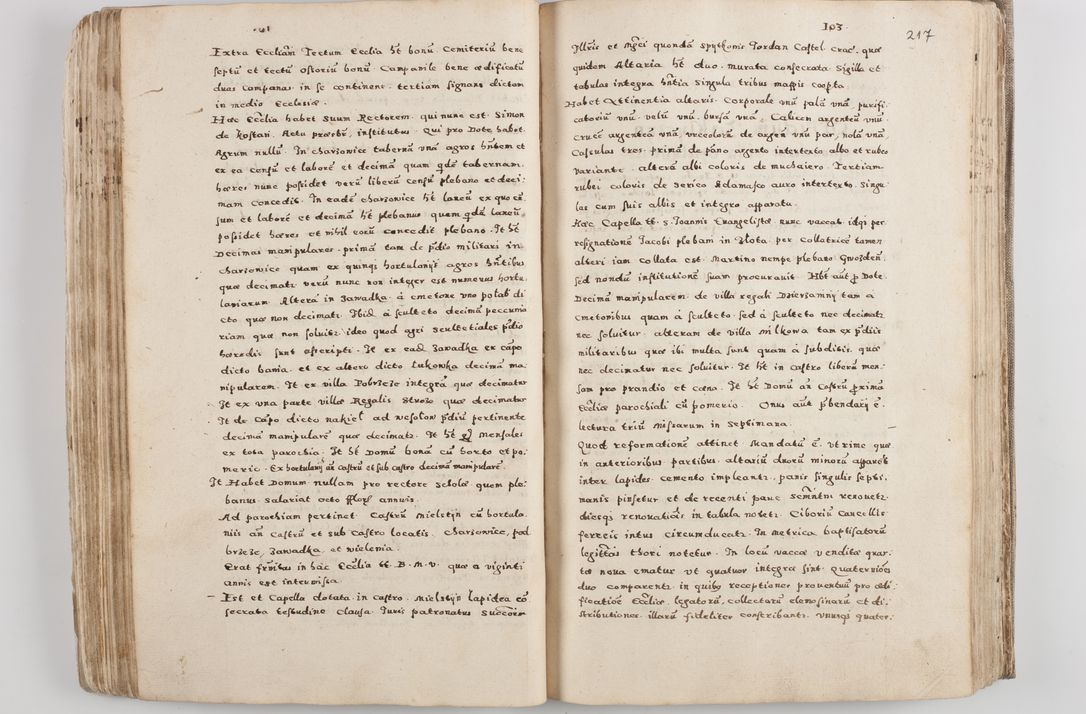 Extra Eccliam Tectum Ecclia ht bonu. Cemiteriu bene
septu et tectu ostoriu bonu. Campanile bene aedificatu
duas Campanas in se continens. tertiam signans dictam
in medio Ecclesiae.
Haec Ecclia habet suum Rectorem. qui nunc est Simon
de Kostan. Actu praesbr, institutus. Qui pro Dote habet
Agrum nullu. In charzonice tabernā unā agros hntem et
ex ea consu et laborē et decimā quam qdē tabernam.
haeres nunc possidet veru liberu censu plebano et deci:
mam concedit. In eadē charzonice ht laneu ex quo cē
sum et laborē et decimā ht plebanus. quem qdā laneu
possidet haeres et nihil eoru concedit plebano. It ht
Decimas manipulares. primā tam de pdio militari in
charzonice quam ex quinqs hortulanijs agros hntibus
quae decimatr. veru nunc non integer est numerus hortu
laniarum. Alterā in Zawadka. à cmetone uno polab di
cto quae non decimatr. Ibid. à scultecto decimā peccunia
riam quae non solvitr. ideo quod agri scultetiales pdio
haeredis sunt ascripti. It ex ead Zawadka ex cāpo
dicto bania. et ex altero dicto Lukowka decimā ma
nipularem. It ex villa Pobrzeze integrā quae decimatur
It ex una parte villae Regalis Strozo quae decimatur
It de cāpo dicto nakiel ad wesolow pdiu pertinente
decimā manipularē quae decimatr. It ht Mensales
ex tota parochia. It ht Domu bonā cu horto et po:
merio. Ex hortulanijs an castru et sub castro decimā manipularē.
It Habet Domum nullam pro rectore scholae quem ple:
banus salariat octo fflors annuis.
Ad parochiam pertinet Castru Mielstyn cu hortula
niis an castru et sub castro locatis. Charzonice, pod
brzeze, Zawadka, et wielemia.
Erat frnitas in hac Ecclia tt. B. M. V. quae a viginti
annis est intermissa.
Est et Capella dotata in castro. Mielstyn lapidea cō
secrata testudine clausa. Iuris patronatus success:
103.
217
Illris et Mgci quondā Spytkonis Iordan Castel Crac. quae
quidem Altaria ht duo. murata consecrata. Sigilla et
tabulas integra hntia singula tribus mappis coopta.
Habet Attinentia altaris. Corporale unu palā unā. purifi:
catoriu unu. velu unu. bursā unā. Calicem argenteu unu.
crucē argenteā unā, urceolorū de argen unu par, nolā unā,
Casulas tres. primā de pāno argento intertexto albo et rubeo
variante. alterā albi coloris de muchaiero. Tertiam
rubei coloris de serico Adamasco auro intertexto. singu
las cum suis albis et integro apparatu.
Haec Capella tt. s. Ioannis Euangelistae nunc vaccat. idqs per
resignationē Iacobi plebani in Zlota. per Collatricē tamen
alteri iam collata est. Martino nempe plebano Gwozden.
sed nondu institutionē suam procurauit. Hbt aut p Dote
Decimā manipularem. de villa regali Dzierzaniny tam a
cmetonibus quam à scultecto. sed à scultecto nec decimatr
nec solvitur. alteram de villa Milkowa tam ex pdiis
militaribus quae ibi multa sunt quam à subditis. quae
nec decimatur nec solvitur. It ht in castro liberā men:
sam pro prandio et caena. It ht Domu an Castru primā
Eccliae parochiali cu pomerio. Onus aut pbendarij ē.
lectura triu Missarum in septimana.
Quod reformationē attinet Mandatu ē. ut rime quae
in anterioribus partibus altariu duoru minoru apparēt
inter lapides cemento impleantr. panis singulis septi:
manis pinsetur et de recenti pane semntm renouetr.
diesqs renouatiois in tabula notetr. Ciborium Cancellis
ferreis intus circumducatr. In metrica baptisatoru
legittimi thori notetur. In locu vaccae venditae quar:
ta noua ematur ut quatuor integra sint. Quaterniones
duo comparentr. in quibs receptiones prouentuu pro aedi:
ficatione Eccliae. legatoru, collectaru elemosinaru et di:
stributiones illaru fideliter conscribantr. unusqs quater: